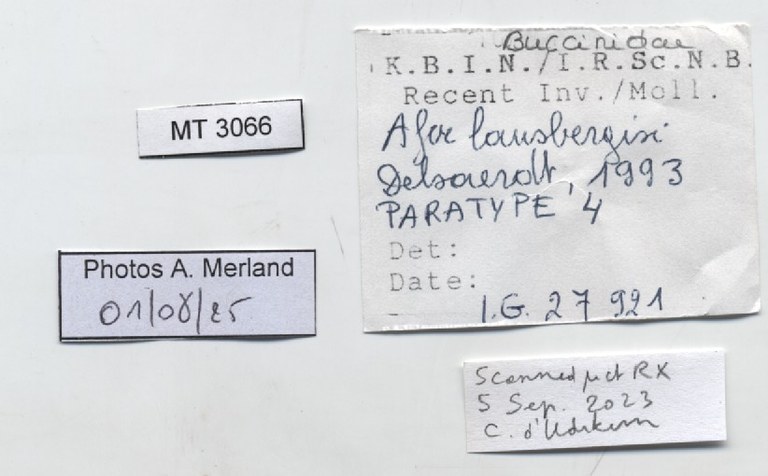 Buccinidae
K.B.I.N./I.R.Sc.N.B.
Recent Inv./Moll.
Afer lansbergisi
Delsaerdt, 1993
PARATYPE 4
Det:
Date:
I.G. 27 921
MT 3066
Photos A. Merland
01/08/25
Scanned µct RX
5 Sep. 2023
C. d'Udekem